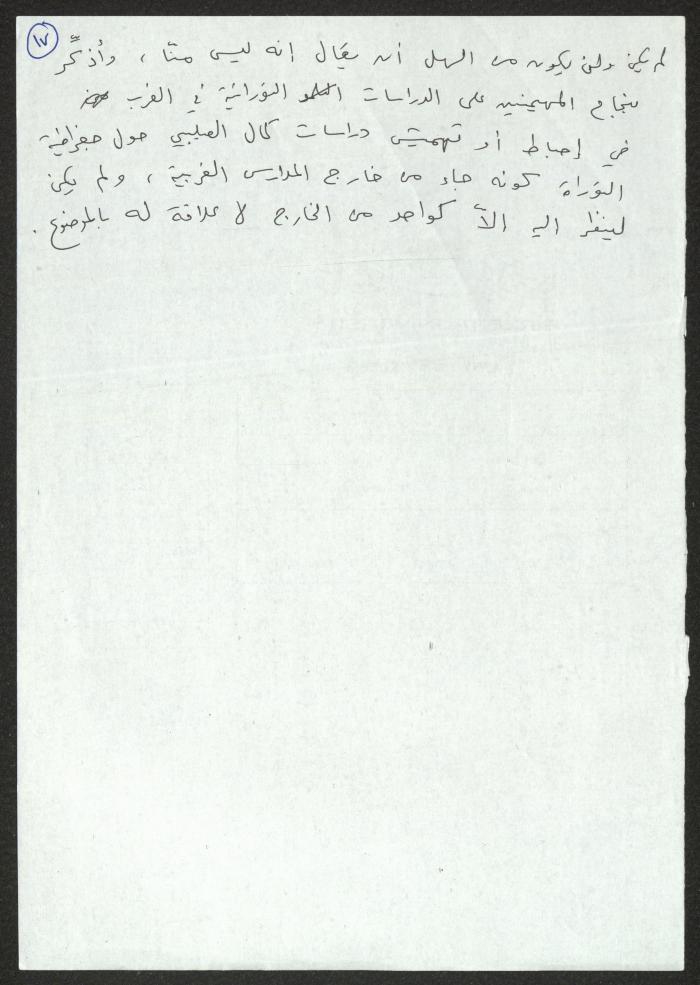 ١٧
لم يكن ولن يكون من السهل أن يقال إنه ليس منّا، وأذكِّر
بنجاح المهيمنين على الدراسات التوراتية في الغرب
في إحباط أو تهميش دراسات كمال الصليبي حول جغرافية
التوراة كونه جاء من خارج المدارس الغربية، ولم يكن
لينظر اليه الاّ كواحد من الخارج لا علاقة له بالموضوع.